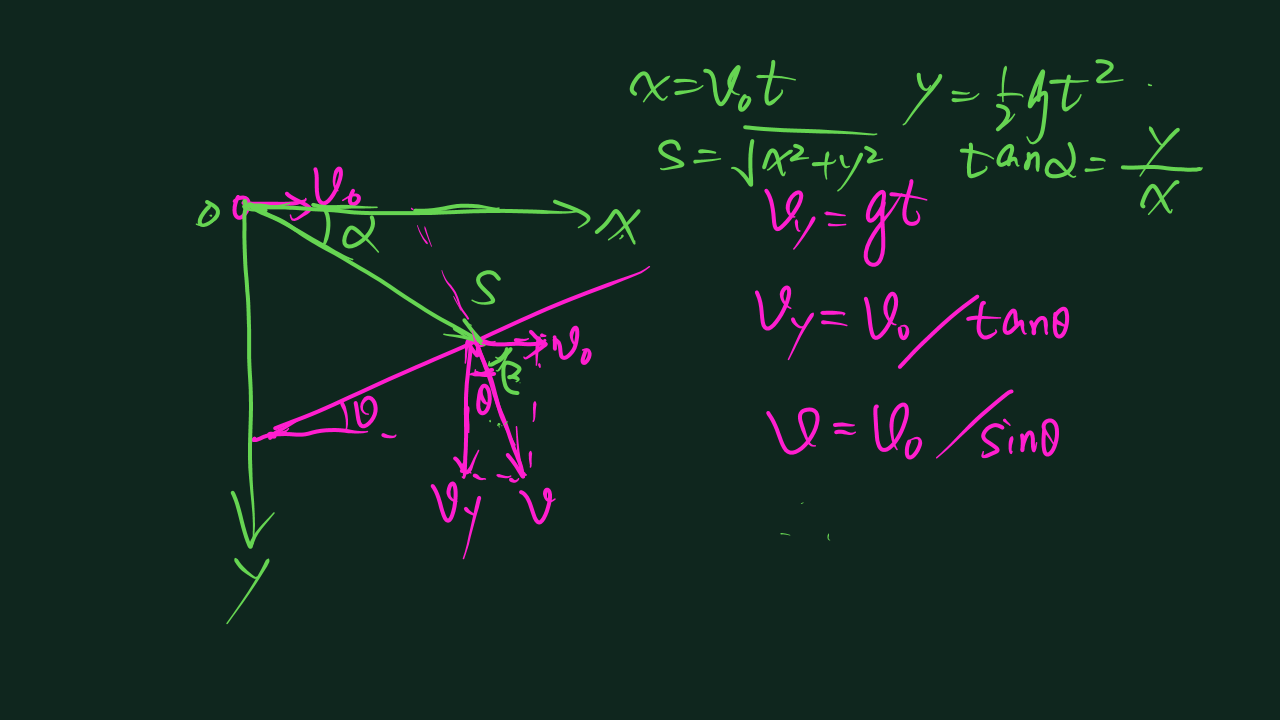 x=v₀t y=½gt²
s=√x²+y² tanα=y/x
v_y=gt
v_y=v₀/tanθ
v=v₀/sinθ
0 v₀ x
α
S
v₀
β
θ
θ
v_y v
y